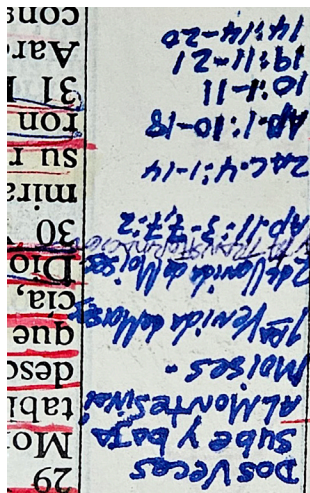 Dos veces
sube y baja
AL MONTE SINAI
Moises.
1ra Venida de Moises
2da Venida de Moises
AP.11:3-7,7:2
ZAC.4:1-14
AP.1:10-18
10:1-11
19:11-21
14:14-20
29
Mo
tabl
desc
que
cia,
Dio
30
mira
su r
ron
31
Aar
cons